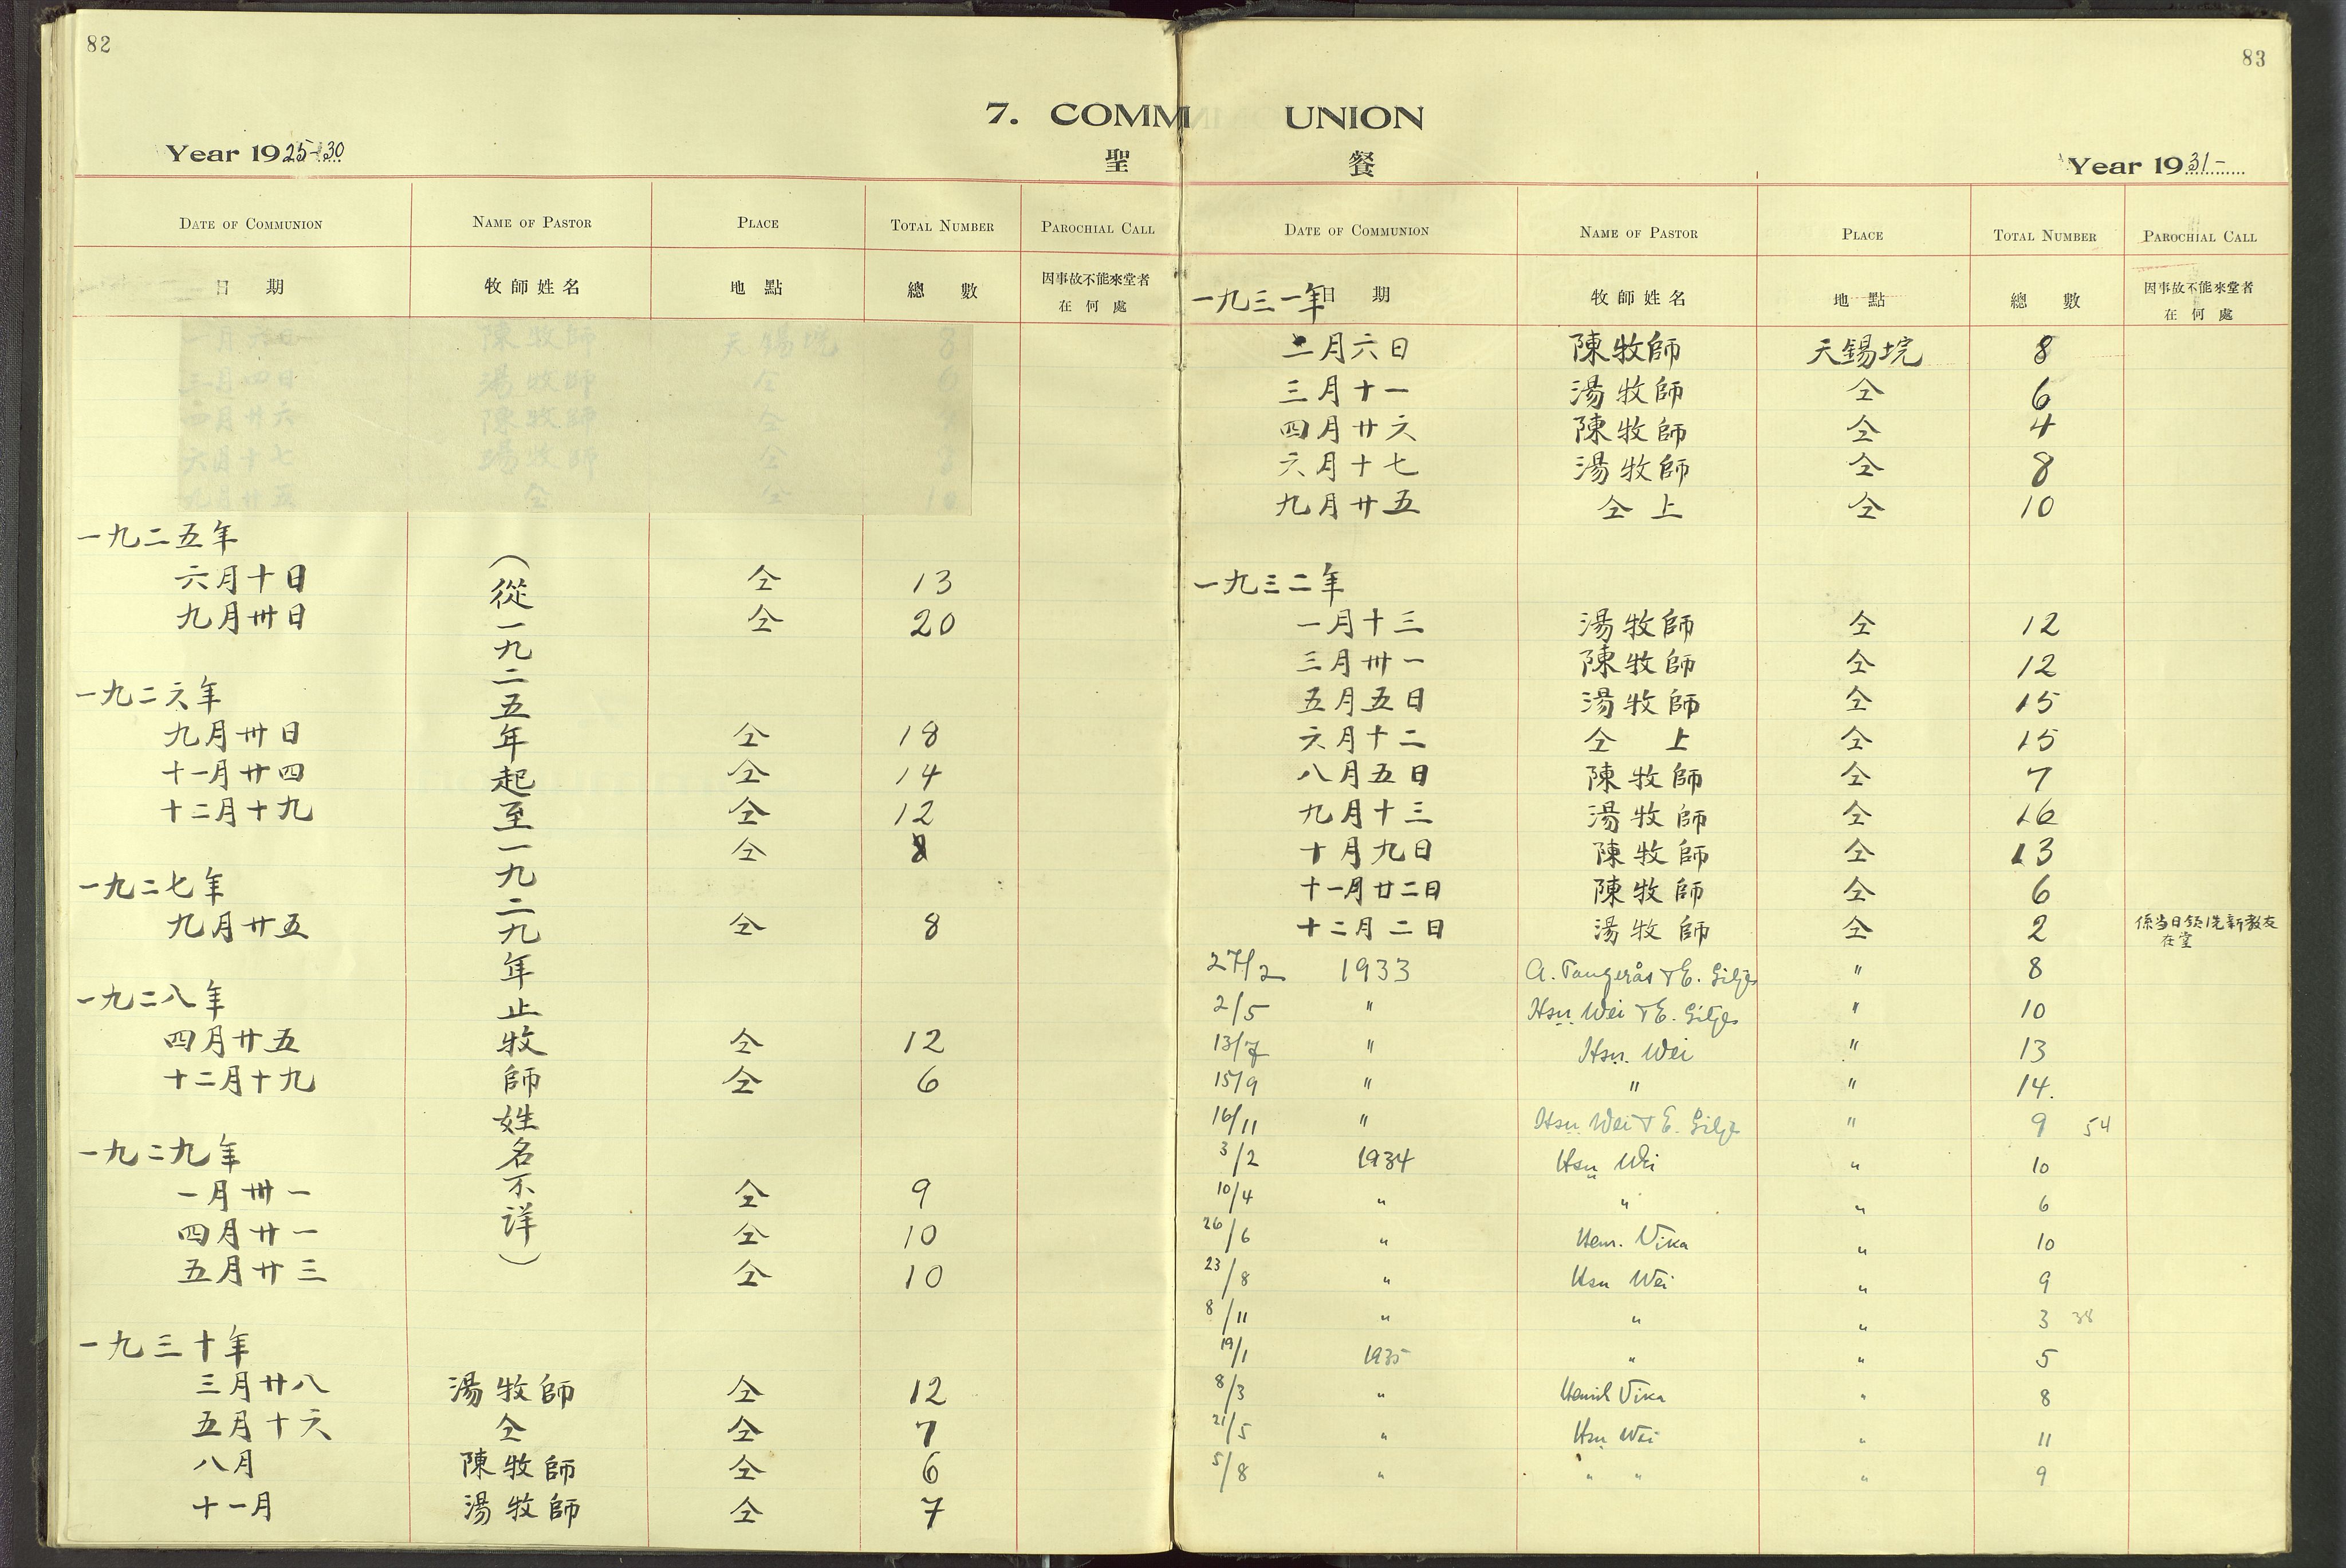 82
7. COMM
Year 1925-30
聖
DATE OF COMMUNION NAME OF PASTOR PLACE TOTAL NUMBER PAROCHIAL CALL
日 期 牧師姓名 地點 總 數 因事故不能來堂者
在何處
一月六日 陳牧師 天錫垸 8
三月四日 湯牧師 仝 6
四月廿六 陳牧師 仝
六月十七 湯牧師 仝
九月廿五 仝 仝 10
一九二五年
六月十日 仝 13
九月卅日 仝 20
一九二六年
九月卅日 仝 18
十一月廿四 仝 14
十二月十九 仝 12
仝 8
一九二七年
九月廿五 仝 8
一九二八年
四月廿五 仝 12
十二月十九 仝 6
一九二九年
一月卅一 仝 9
四月廿一 仝 10
五月廿三 仝 10
(從一九二五年起至一九二九年止牧師姓名不详)
一九三十年
三月廿八 湯牧師 仝 12
五月十六 仝 仝 7
八月 陳牧師 仝 6
十一月 湯牧師 仝 7
83
UNION
餐
Year 1931-
DATE OF COMMUNION NAME OF PASTOR PLACE TOTAL NUMBER PAROCHIAL CALL
一九三一年 日 期 牧師姓名 地點 總 數 因事故不能來堂者
在何處
二月六日 陳牧師 天錫垸 8
三月十一 湯牧師 仝 6
四月廿六 陳牧師 仝 4
六月十七 湯牧師 仝 8
九月廿五 仝上 仝 10
一九三二年
一月十三 湯牧師 仝 12
三月卅一 陳牧師 仝 12
五月五日 湯牧師 仝 15
六月十二 仝 上 仝 15
八月五日 陳牧師 仝 7
九月十三 湯牧師 仝 16
十月九日 陳牧師 仝 13
十一月廿二日 陳牧師 仝 6
十二月二日 湯牧師 仝 2 係当日領洗新教友
在堂
27/2 1933 A. Tangerås & E. Gilje " 8
2/5 " Hsu Wei & E. Gilje " 10
13/7 " Hsu Wei " 13
15/9 " " " 14.
16/11 " Hsu Wei & E. Gilje " 9 54
3/2 1934 Hsu Wei " 10
10/4 " " " 6
26/6 " Henr. Vika " 10
23/8 " Hsu Wei " 9
8/11 " " " 3 38
19/1 1935 " " 5
8/3 " Henrik Vika " 8
21/5 " Hsu Wei " 11
5/8 " " " " 9